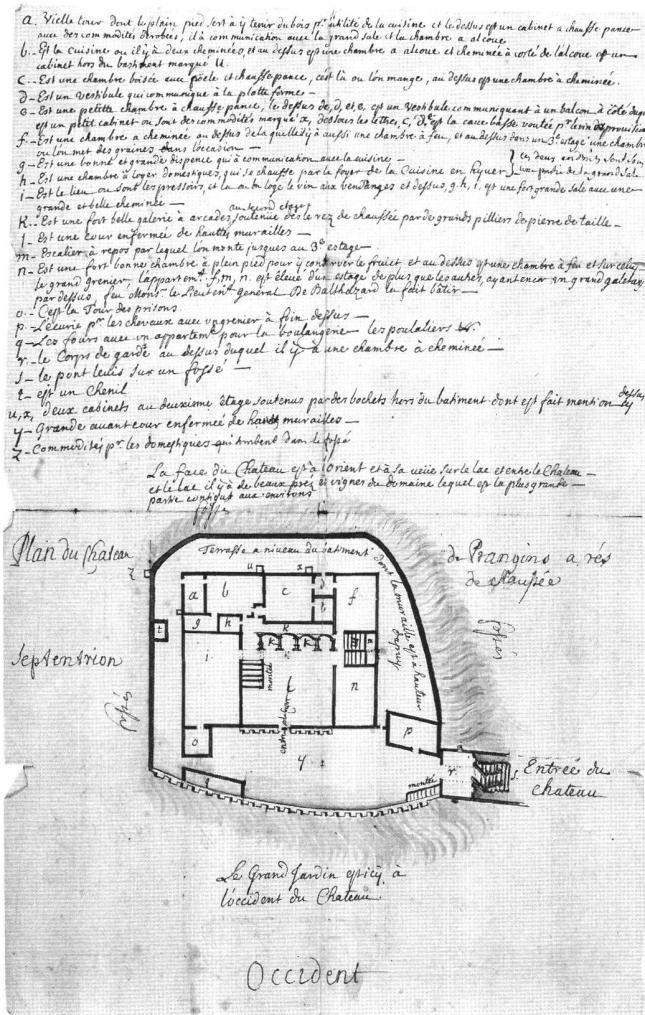 a. Vielle tour dont le plain pied sert à y tenir du bois pr. l'utilité de la cuisine et le dessus est un cabinet a chauffe pance
avec des commodités derobées, il à communication avec la grand sale et la chambre a alcove
b. Est la Cuisine ou il y à deux cheminées, et au dessus est une chambre a alcove et cheminée à coté de l'alcove est un
cabinet hors du bastiment marqué U.
c. Est une chambre boisée avec poële et chauffe pance, c'est là ou l'on mange, au dessus est une chambre à cheminée.
d. Est un vestibule qui communique a la platte forme
e. Est une petitte chambre à chauffe pance, le dessus de, d, et e, est un vestibule communiquant à un balcon à côté duquel
est un petit cabinet ou sont des commodités marqué x, dessous les lettres, c, d, e est la cave basse voutée pr.
f. Est une chambre a cheminée au dessus de la quelle il y à aussi une chambre à feu, et au dessus dans un 3e. estage une chambre
ou l'on met des graines dans l'occasion
g. Est une bonne et grande dispence qui à communication avec la cuisine
h. Est une chambre à loger domestiques, qui se chauffe par le foyer de la Cuisine en hyver
ces deux endroits sont sous
une partie de la grand sale
i. Est le lieu ou sont les pressoirs, et la ou on loge le vin aux vendanges et dessus, g. h, i. est une fort grande sale avec une
grande et belle cheminée
au second etage
K. Est une fort belle galerie a arcades, soutenue dès le rez de chaussée par de grands pilliers de pierre de taille
l. Est une cour enfermée de hauttes murailles
m. Escalier à repos par lequel l'on monte jusques au 3e. estage
n. Est une fort bonne chambre à plain pied pour y conserver le fruict, et au dessus est une chambre à feu et sur celuy
le grand grenier, l'appartemt. f, m, n. est élevé d'un estage de plus que les autres, ayant encor un grand galetan
par dessus, feu Monsr. le Lieutent. général De Balthazard la fait bâtir
o. C'est la Tour des prisons.
p. L'écurie pr. les chevaux avec un grenier à foin dessus
q. Les fours avec un appartemt. pour la boulangerie les poulaliers
r. le Corps de garde au dessus duquel il y à une chambre à cheminée
s. le pont levis sur un fossé
t. est un Chenil
u, x, deux cabinets au deuxieme êtage soutenus par des bochets hors du batiment dont est fait mention dessus
y. Grande avant cour enfermée de murailles
z. Commodités pr. les domestiques qui tombent dans le fossé
La face du Chateau est à l'orient et à sa veüe sur le lac et entre le Chateau
et le lac il y à de beaux prés et vignes du domaine lequel est la plus grande
partie contigus aux environs
fossés
Plan du Chateau
de Prangins a rés
de chaussée
Terrasse a niveau du batiment dont la muraille est à hauteur
d'apuy
z
u
x
a
b
c
d
e
f
g
h
k
k
k
t
i
l
montée
m
n
n
Septentrion
fossés
fossés
o
p
y
q
r
s
montée
Entrée du
Chateau
Le Grand Jardin est icy à
l'occident du Chateau
Occident